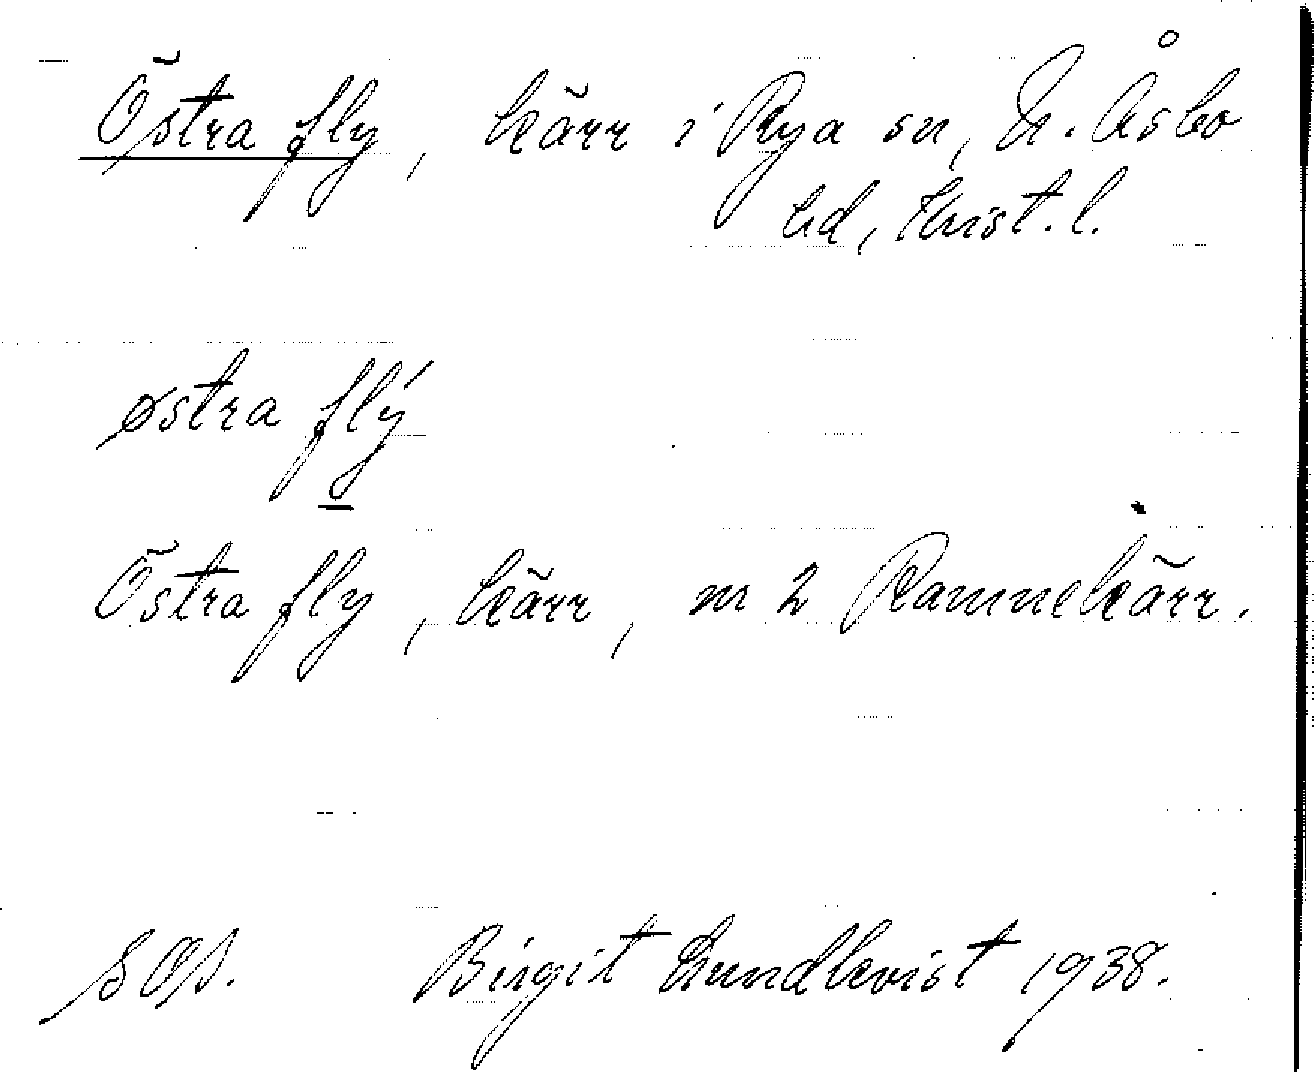 Östra fly, kärr i Rya sn, N. Åsbo
hd, Krist. l.
østra flý
Östra fly, kärr, nr 2 Ramnekärr.
SOA. Birgit Lundkvist 1938.